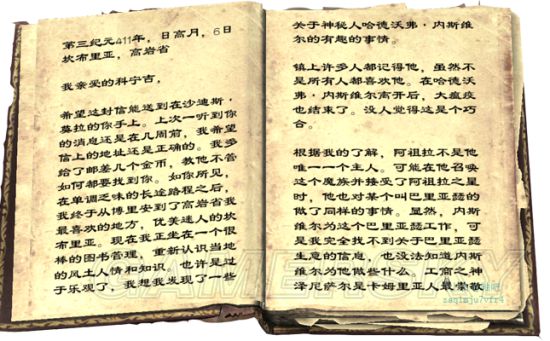 第三纪元411年，日高月，6日
坎布里亚，高岩省
我亲爱的科宁吉，
希望这封信能送到在沙迪斯·
莫拉的你手上。上次一听到你
的消息还是在几周前，我希望
信上的地址还是正确的。我多
给了邮差几个金币，教他不管
如何都要找到你。如你所见，
在单调乏味的长途路程之后，
我终于从博里安到了高岩省我
最喜欢的地方，优美迷人的坎
布里亚。现在我正坐在一个很
棒的图书管理，重新认识当地
的风土人情和知识。也许是过
于乐观了，我想我发现了一些
关于神秘人哈德沃弗·内斯维
尔的有趣的事情。
镇上许多人都记得他，虽然不
是所有人都喜欢他。在哈德沃
弗·内斯维尔离开后，大瘟疫
也结束了。没人觉得这是个巧
合。
根据我的了解，阿祖拉不是他
唯一一个主人。可能在他召唤
这个魔族并接受了阿祖拉之星
时，他也对某个叫巴里亚瑟的
做了同样的事情。显然，内斯
维尔为这个巴里亚瑟工作，可
是我完全找不到关于巴里亚瑟
生意的信息，也没法知道内斯
维尔为他做些什么。工商之神
泽尼萨尔是卡姆里亚人最崇敬
GAMERSKY
zaqimju7vfr4